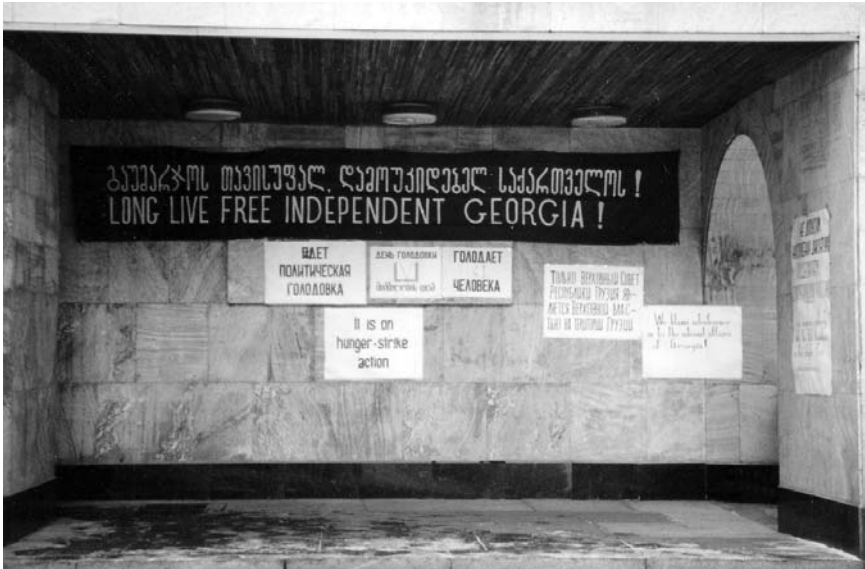 გაუმარჯოს თავისუფალ, დამოუკიდებელ საქართველოს !
LONG LIVE FREE INDEPENDENT GEORGIA !
ИДЕТ
ПОЛИТИЧЕСКАЯ
ГОЛОДОВКА
ДЕНЬ ГОЛОДОВКИ
ГОЛОДАЕТ
ЧЕЛОВЕКА
It is on
hunger-strike
action
ТОЛЬКО ВЕРХОВНЫЙ СОВЕТ
РЕСПУБЛИКИ ГРУЗИЯ ЯВ-
ЛЯЕТСЯ ВЕРХОВНОЙ ВЛАС-
ТЬЮ НА ГРУЗИИ
We
to the internal affairs
of Georgia!